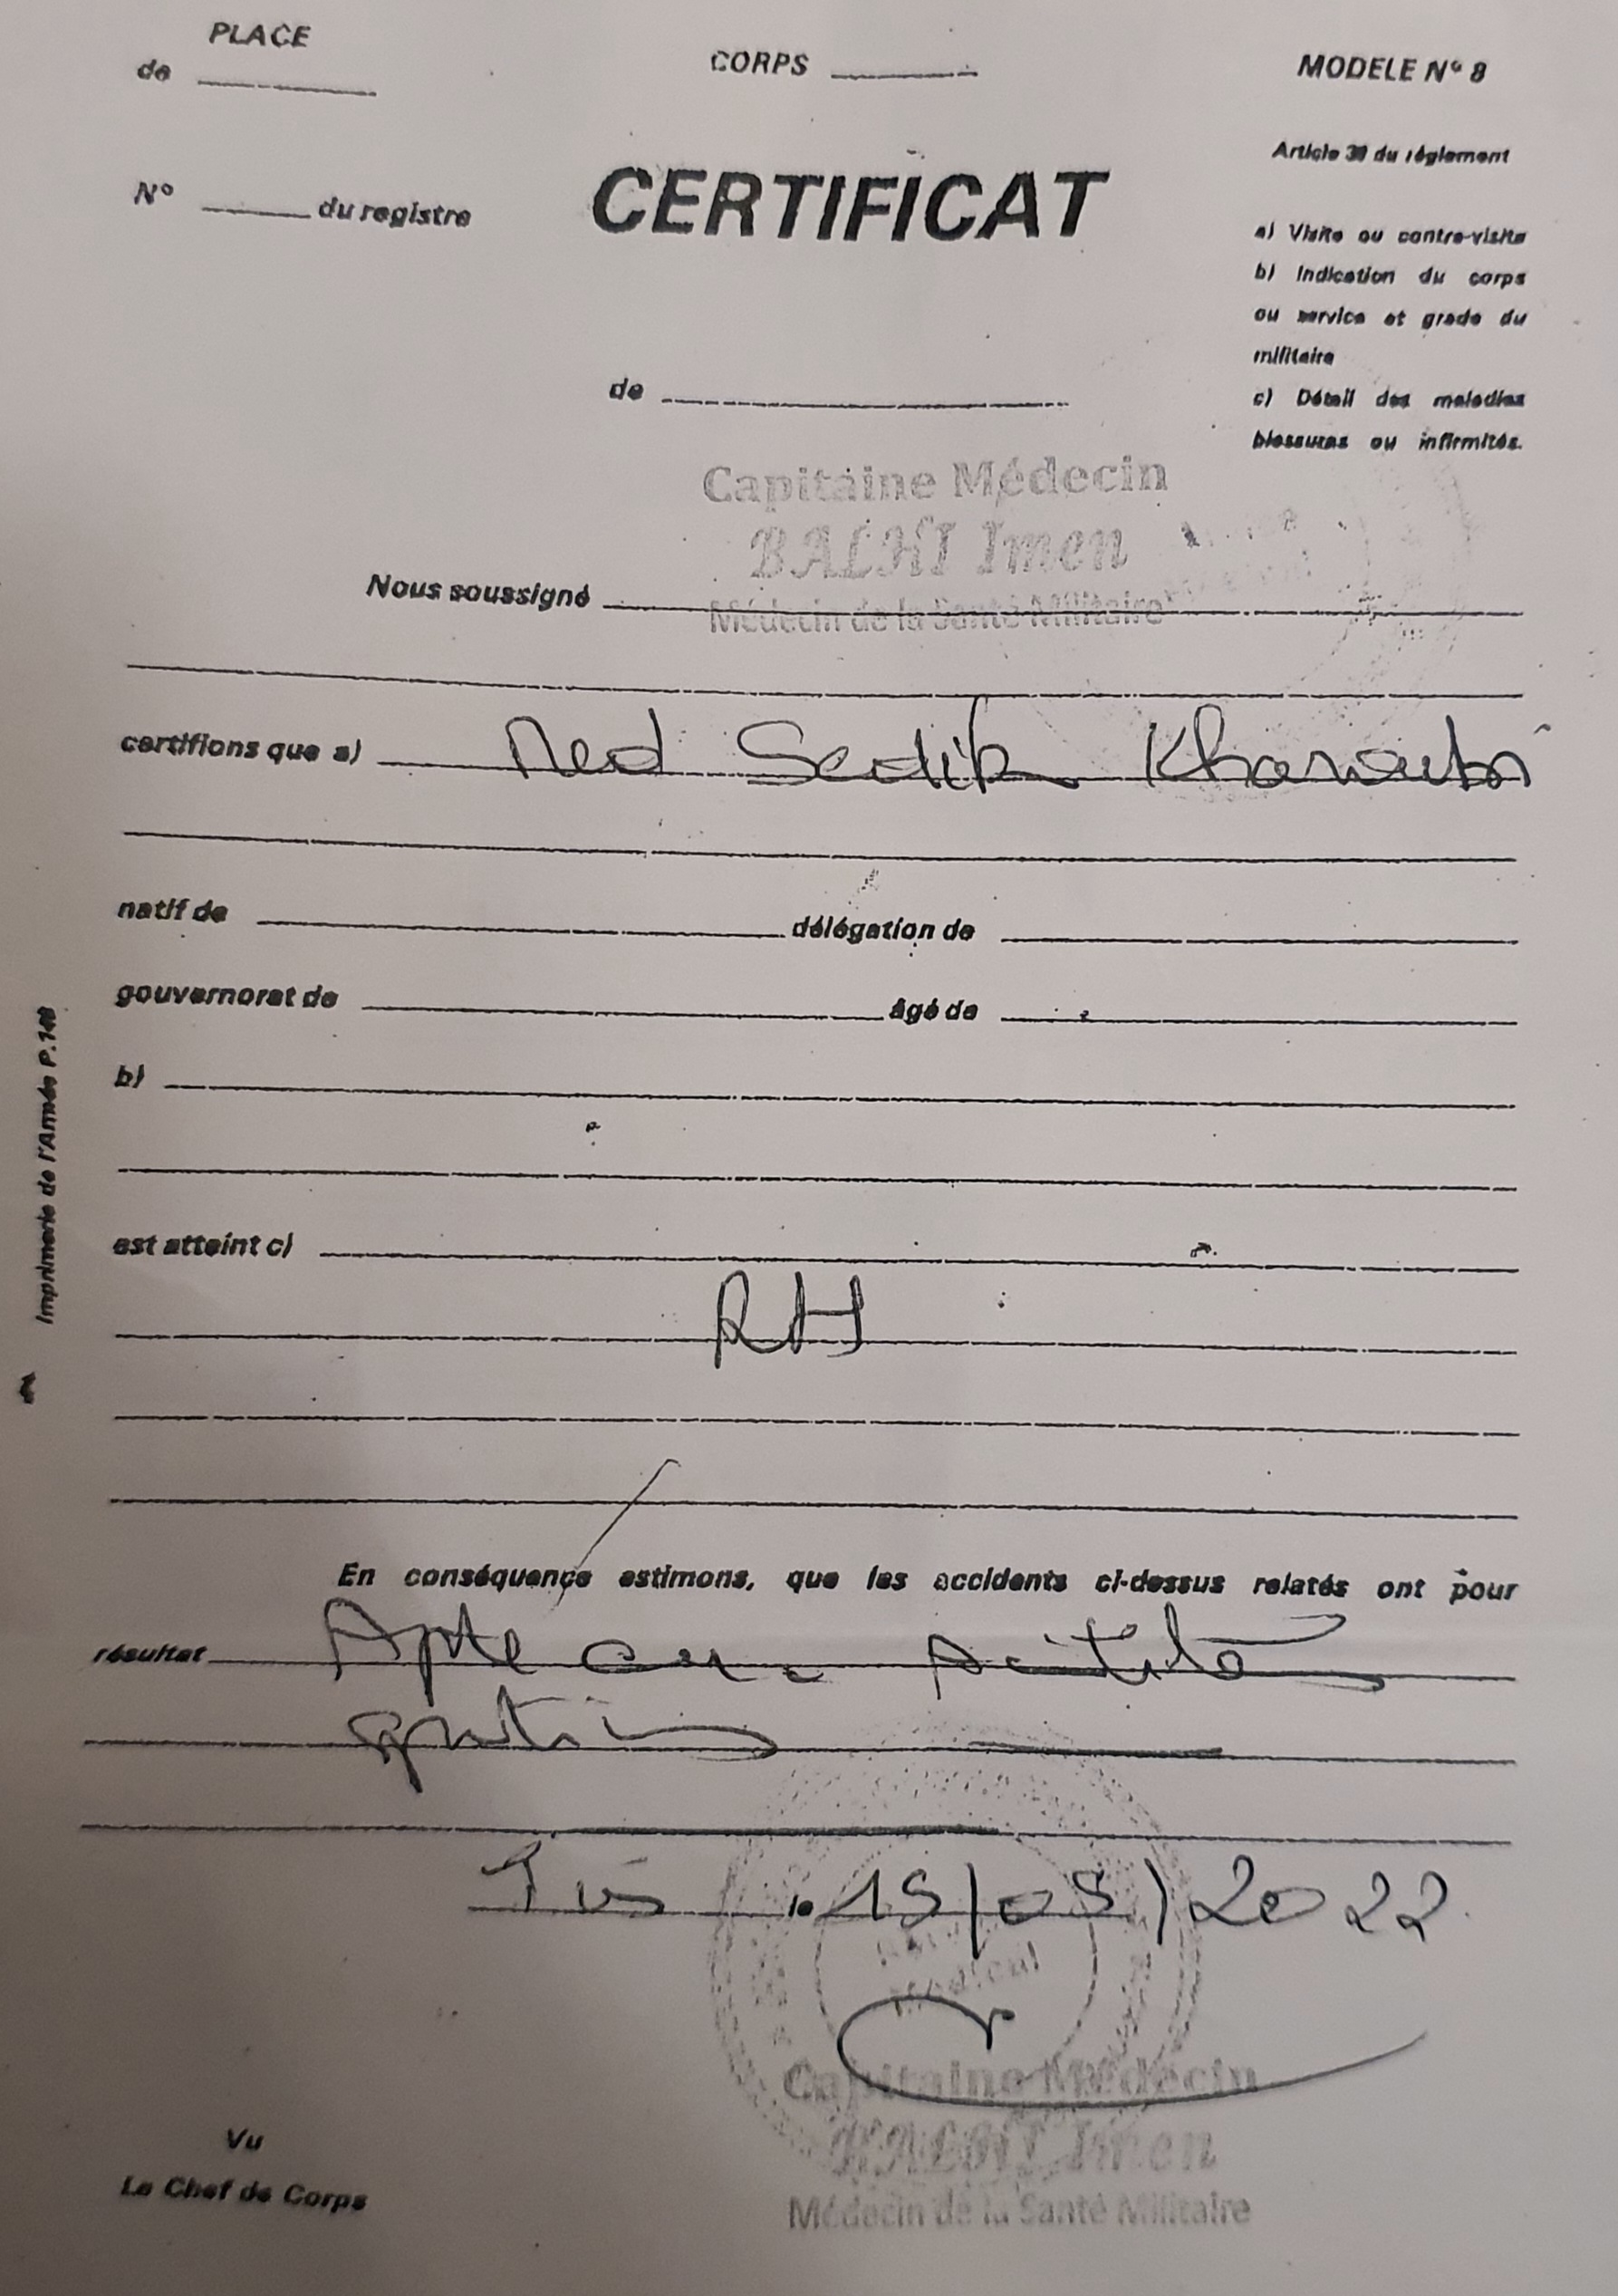 PLACE
de
CORPS
MODELE N° 8
Article 39 du règlement
N° du registre
CERTIFICAT
a) Visite ou contre-visite
b) Indication du corps
ou service et grade du
militaire
c) Détail des maladies
blessures ou infirmités.
de
Capitaine Médecin
BALHI Imen
Nous soussigné
Médecin de la Santé Militaire
certifions que a) Med Sedik
natif de délégation de
gouvernorat de âgé de
b)
est atteint c)
RH
En conséquence estimons, que les accidents ci-dessus relatés ont pour
résultat Apte
le 15/05/2022
Médical
Capitaine Médecin
BALHI Imen
Médecin de la Santé Militaire
Vu
Le Chef de Corps
Imprimerie de l'Armée P.148